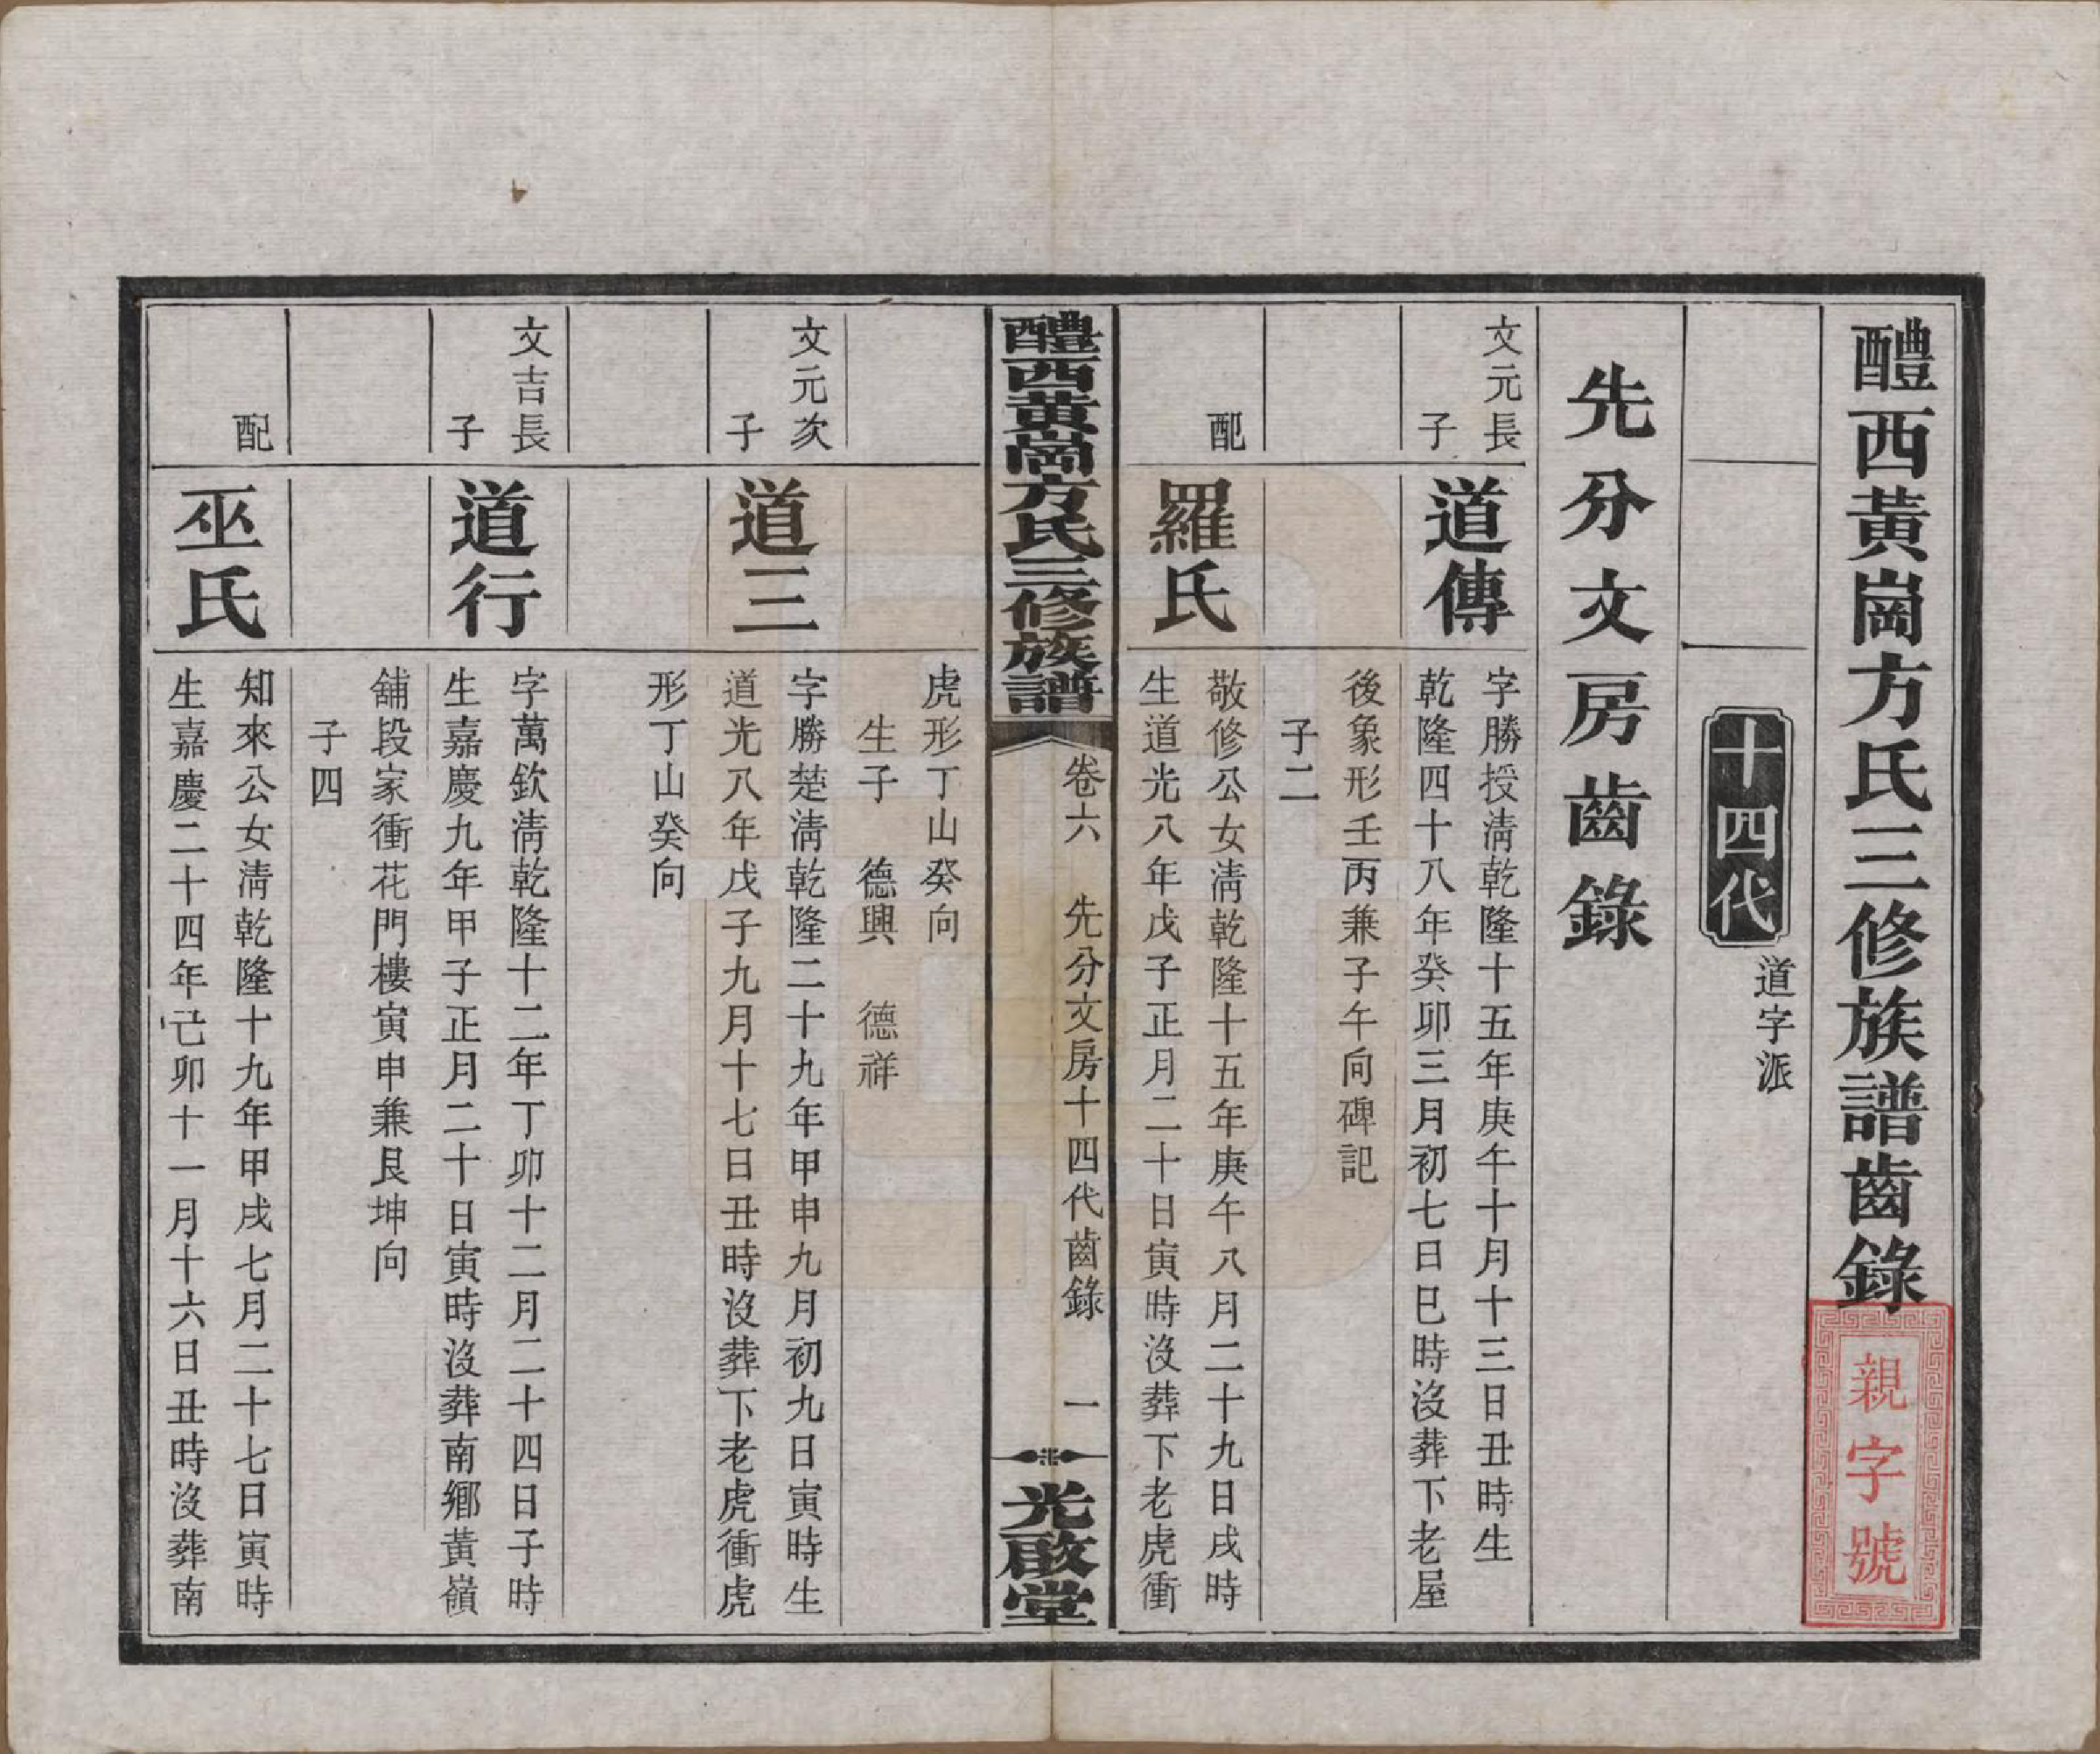 醴西黃崗方氏三修族譜齒錄
親字號
十四代
道字派
先分文房齒錄
文元長
子
道傳
字勝授淸乾隆十五年庚午十月十三日丑時生
乾隆四十八年癸卯三月初七日巳時沒葬下老屋
後象形壬丙兼子午向碑記
子二
配
羅氏
敬修公女淸乾隆十五年庚午八月二十九日戌時
生道光八年戊子正月二十日寅時沒葬下老虎衝
醴西黃崗方氏三修族譜
卷六 先分文房十四代齒錄 一
光啟堂
虎形丁山癸向
生子 德興 德祥
文元次
子
道三
字勝楚淸乾隆二十九年甲申九月初九日寅時生
道光八年戊子九月十七日丑時沒葬下老虎衝虎
形丁山癸向
文吉長
子
道行
字萬欽淸乾隆十二年丁卯十二月二十四日子時
生嘉慶九年甲子正月二十日寅時沒葬南鄉黃嶺
舖段家衝花門樓寅申兼艮坤向
子四
配
巫氏
知來公女淸乾隆十九年甲戌七月二十七日寅時
生嘉慶二十四年己卯十一月十六日丑時沒葬南